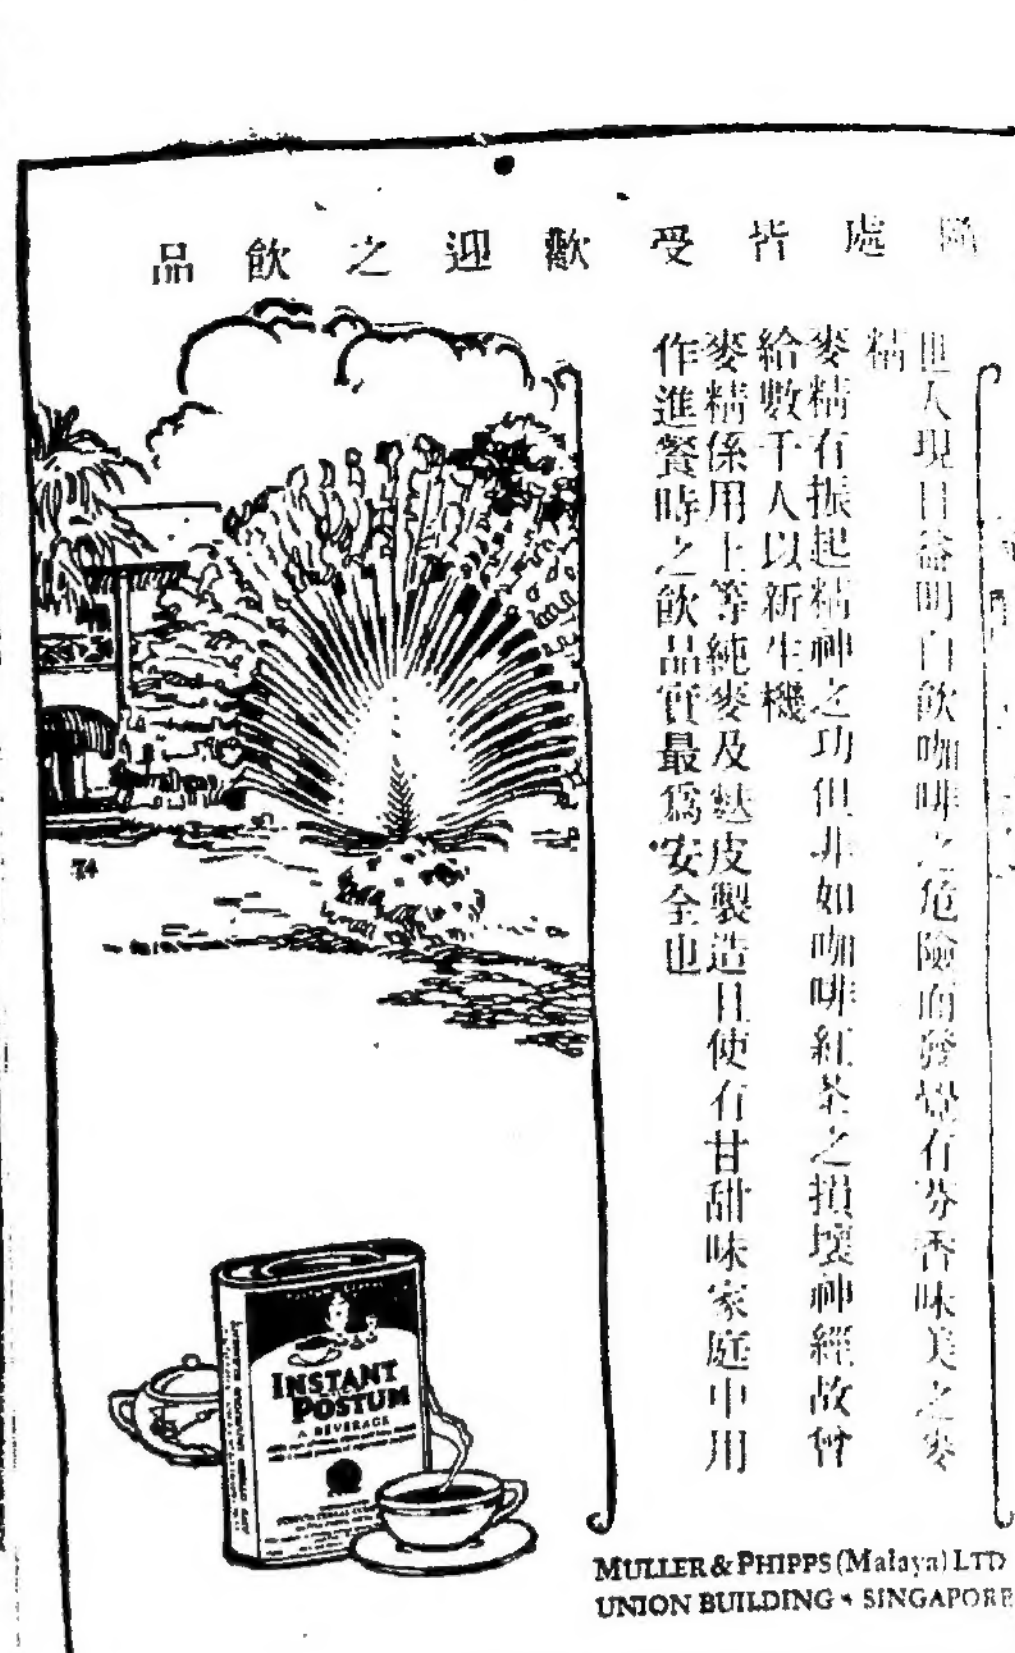 隨處皆受歡迎之飲品
世人現日益明白飲咖啡之危險而發覺有芬香味美之麥
精
麥精有振起精神之功但非如咖啡紅茶之損壞神經故曾
給數千人以新生機
麥精係用上等純麥及麩皮製造且使有甘甜味家庭中用
作進餐時之飲品實最為安全也
74
INSTANT
POSTUM
A BEVERAGE
MULLER & PHIPPS (Malaya) LTD
UNION BUILDING • SINGAPORE